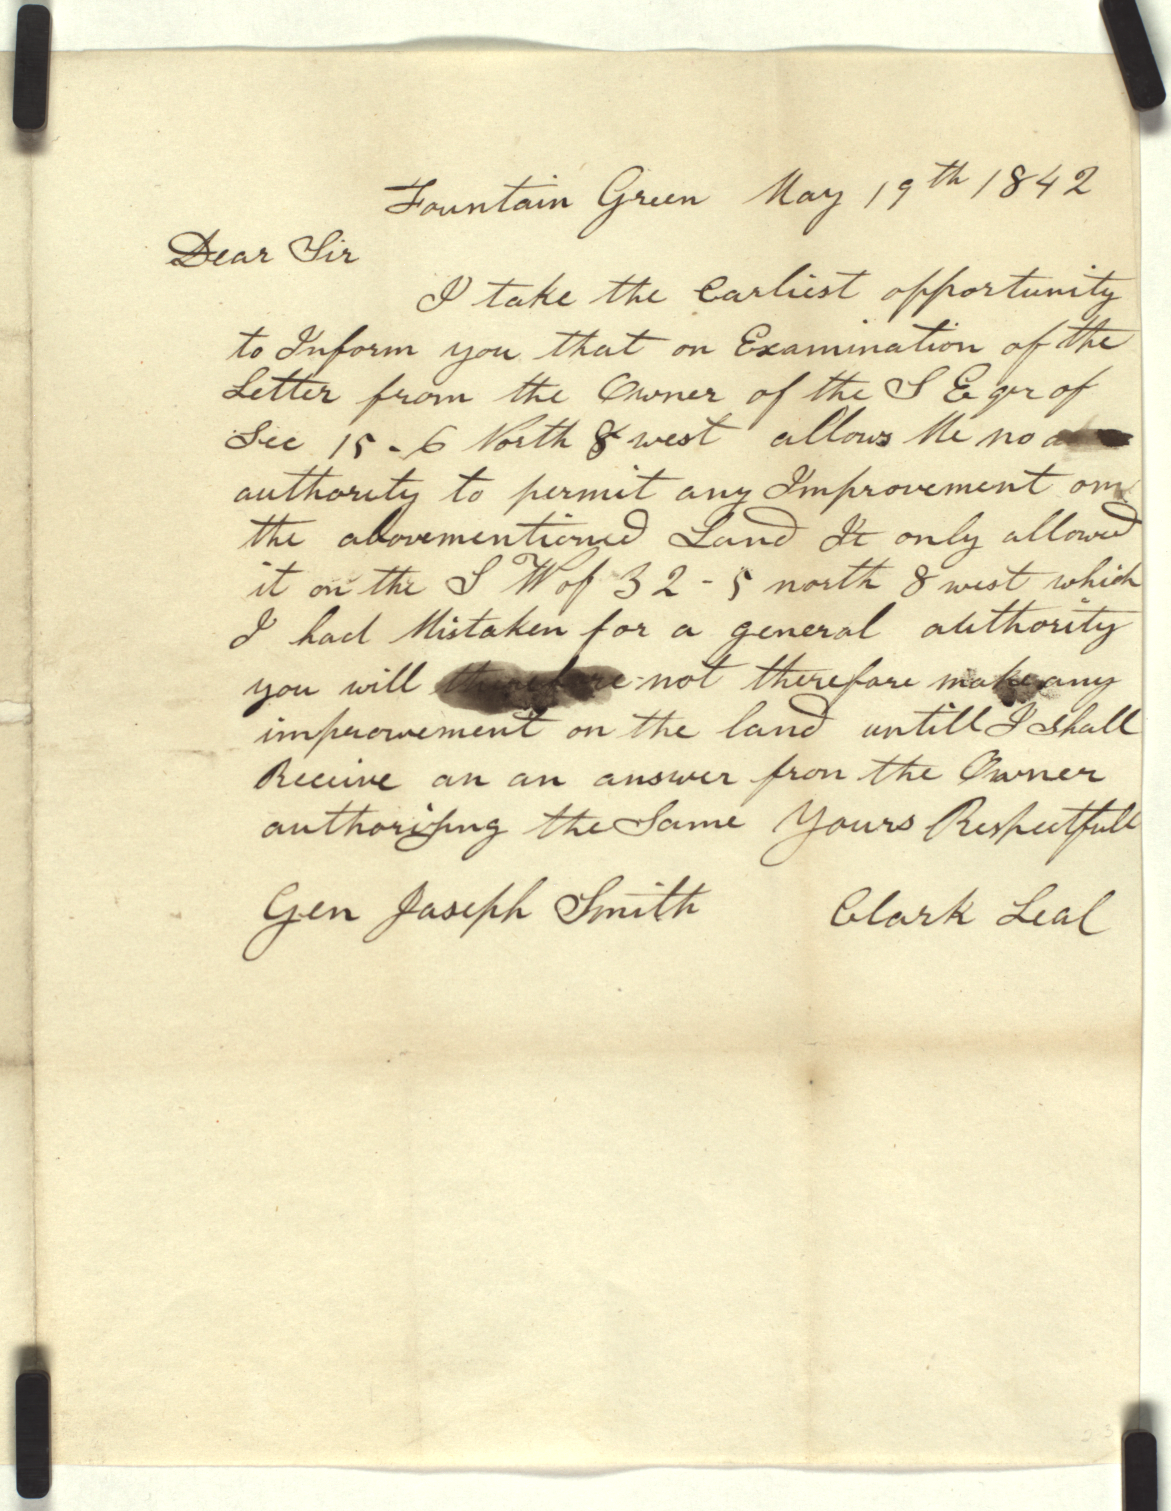 Fountain Green May 19th 1842
Dear Sir
I take the Earliest opportunity
to Inform you that on Examination of the
Letter from the Owner of the S E qr of
Sec 15 - 6 North 8 west allows Me no
authority to permit any Improvement on
the abovementioned Land It only allowed
it on the S W of 32 - 5 north 8 west which
I had Mistaken for a general authority
you will therefore not therefore make any
improvement on the land untill I shall
Receive an an answer fron the Owner
authorising the Same Yours Respectfull
Gen Joseph Smith Clark Leal